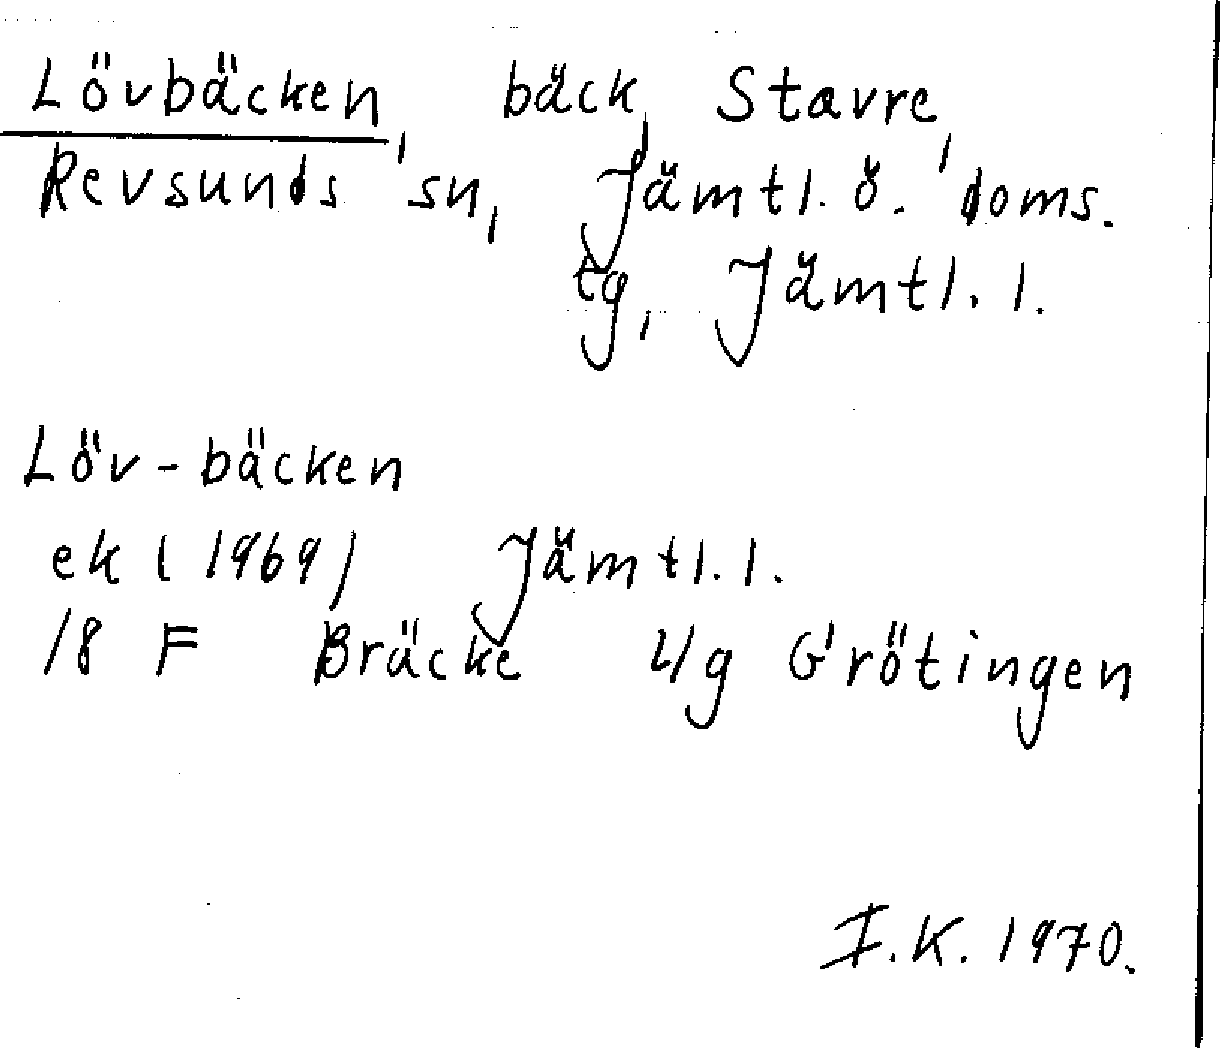 Lövbäcken, bäck, Stavre,
Revsunds sn, Jämtl. ö. doms.
tg, Jämtl. l.
Löv-bäcken
ek (1969) Jämtl. l.
18 F Bräcke 4/g Grötingen
I.K. 1970.